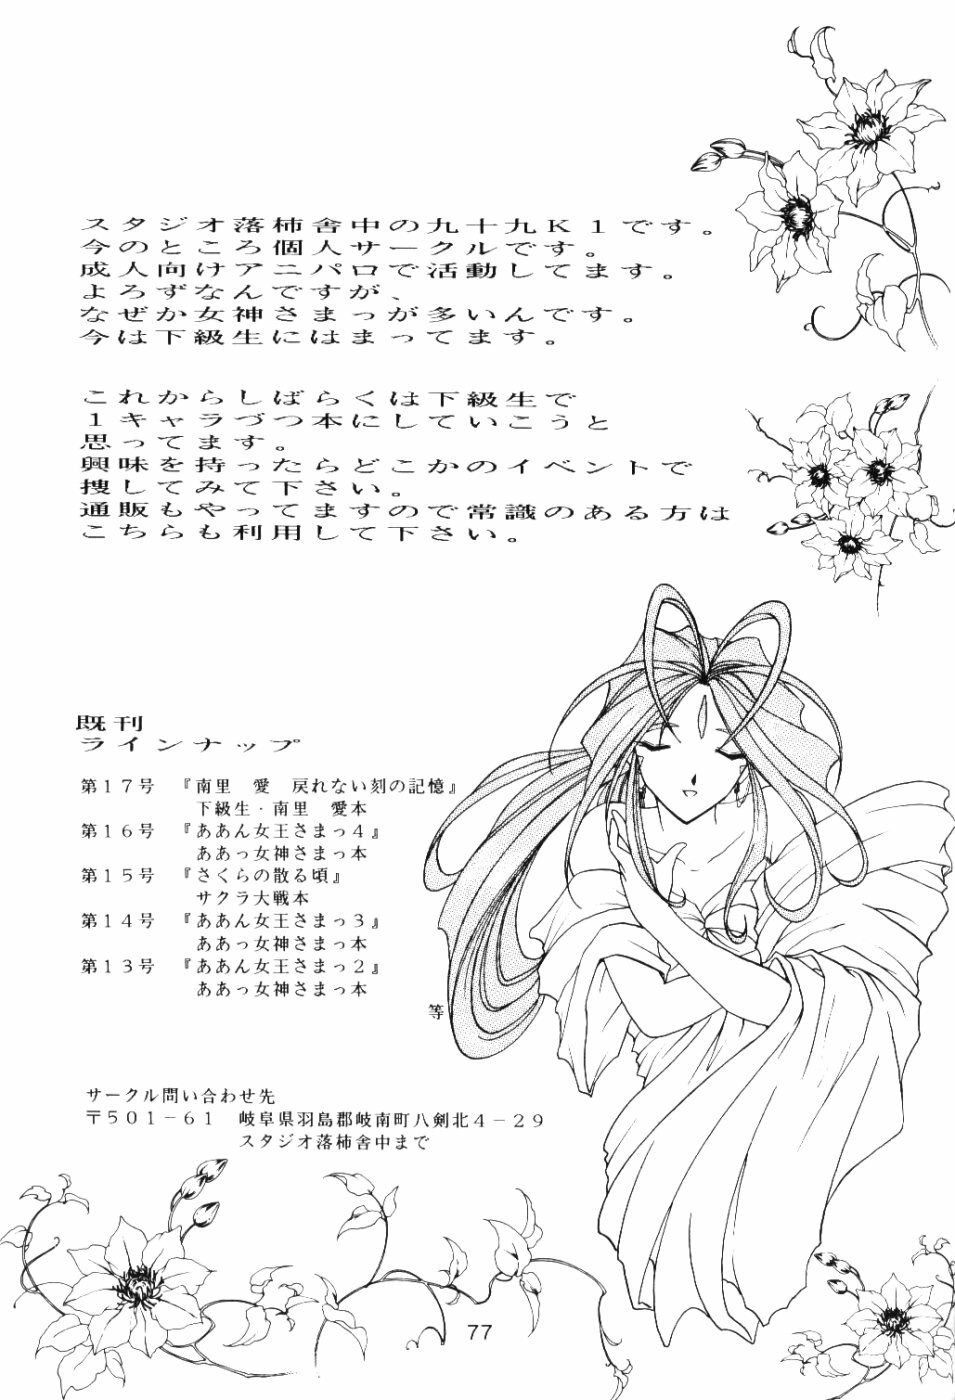 スタジオ落柿舎中の九十九K１です。
今のところ個人サークルです。
成人向けアニパロで活動してます。
よろずなんですが、
なぜか女神さまっが多いんです。
今は下級生にはまってます。
これからしばらくは下級生で
１キャラづつ本にしていこうと
思ってます。
興味を持ったらどこかのイベントで
捜してみて下さい。
通販もやってますので常識のある方は
こちらも利用して下さい。
既刊
ラインナップ
第１７号　『南里　愛　戻れない刻の記憶』
下級生・南里　愛本
第１６号　『ああん女王さまっ４』
ああっ女神さまっ本
第１５号　『さくらの散る頃』
サクラ大戦本
第１４号　『ああん女王さまっ３』
ああっ女神さまっ本
第１３号　『ああん女王さまっ２』
ああっ女神さまっ本
等
サークル問い合わせ先
〒５０１－６１　岐阜県羽島郡岐南町八剣北４－２９
スタジオ落柿舎中まで
77